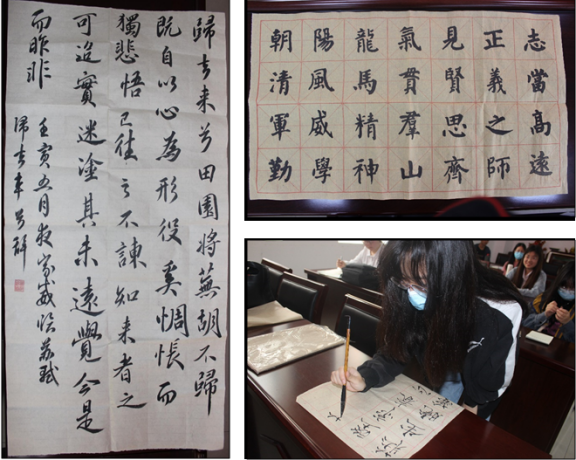 歸去来兮田園将蕪胡不歸
既自以心為形役奚惆悵而
獨悲悟已往之不諫知来者之
可追實迷塗其未遠覺今是
而昨非
壬寅五月夜家威臨蘇軾
歸去来兮辭
志當高遠
正義之師
見賢思齊
氣貫羣山
龍馬精神
陽風威學
朝清軍勤